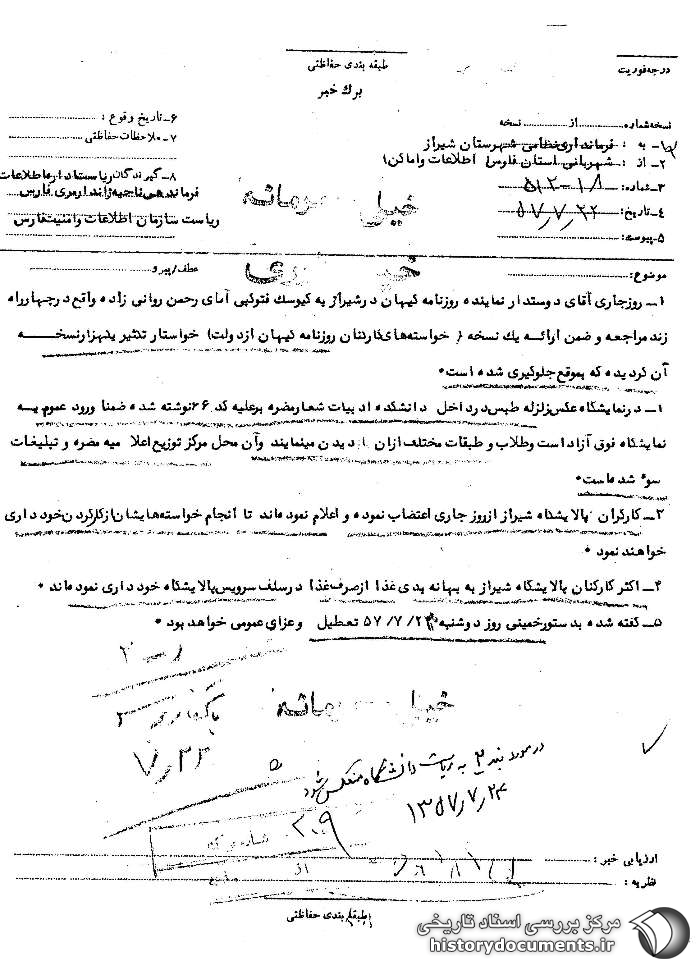 طبقه بندی حفاظتی
درجه فوریت
برگ خبر
نسخه شماره ........ از ........ نسخه
۱ـ به : فرمانداری نظامی شهرستان شیراز
۲ـ از : شهربانی استان فارس ( اطلاعات و اماکن )
۳ـ شماره: ۵۱۲-۱۸
۴ـ تاریخ: ۵۷/۷/۲۲
۵ـ پیوست:
۶ـ تاریخ وقوع :
۷ـ ملاحظات حفاظتی :
۸ـ گیرندگان ریاست اداره اطلاعات
فرماندهی ناحیه ژاندارمری فارس
ریاست سازمان اطلاعات و امنیت فارس
خیلی محرمانه
خیلی فوری
موضوع:
عطف/پیرو
۱ـ روز جاری آقای دوستدار نماینده روزنامه کیهان در شیراز به کیوسک فتوکپی آقای رحمن روانی زاده واقع در چهارراه
زند مراجعه و ضمن ارائه یک نسخه ( خواسته‌های کارکنان روزنامه کیهان از دولت) خواستار تکثیر یکهزار نسخه
آن گردیده که بموقع جلوگیری شده است.
۱ـ در نمایشگاه عکس زلزله طبس در داخل دانشکده ادبیات شعار مضره بر علیه کد ۶۶ نوشته شده ضمنا ورود عموم به
نمایشگاه فوق آزاد است و طلاب و طبقات مختلف از آن بازدیدن مینمایند و آن محل مرکز توزیع اعلامیه مضره و تبلیغات
سوء شده است.
۳ـ کارگران پالایشگاه شیراز از روز جاری اعتصاب نموده و اعلام نموده‌اند تا انجام خواسته‌هایشان از کار کردن خودداری
خواهند نمود .
۴ـ اکثر کارکنان پالایشگاه شیراز به بهانه بدی غذا از صرف غذا در سلف سرویس پالایشگاه خودداری نموده‌اند .
۵ـ گفته شده بدستور خمینی روز دوشنبه ۵۷/۷/۲۴ تعطیل و عزای عمومی خواهد بود .
خیلی محرمانه
۷/۲۳
در مورد بند ۲ به ریاست دانشگاه منعکس شود
۱۳۵۷/۷/۲۴
۲۰۹
ارزیابی خبر :
نظریه :
طبقه بندی حفاظتی
مرکز بررسی اسناد تاریخی
historydocuments.ir